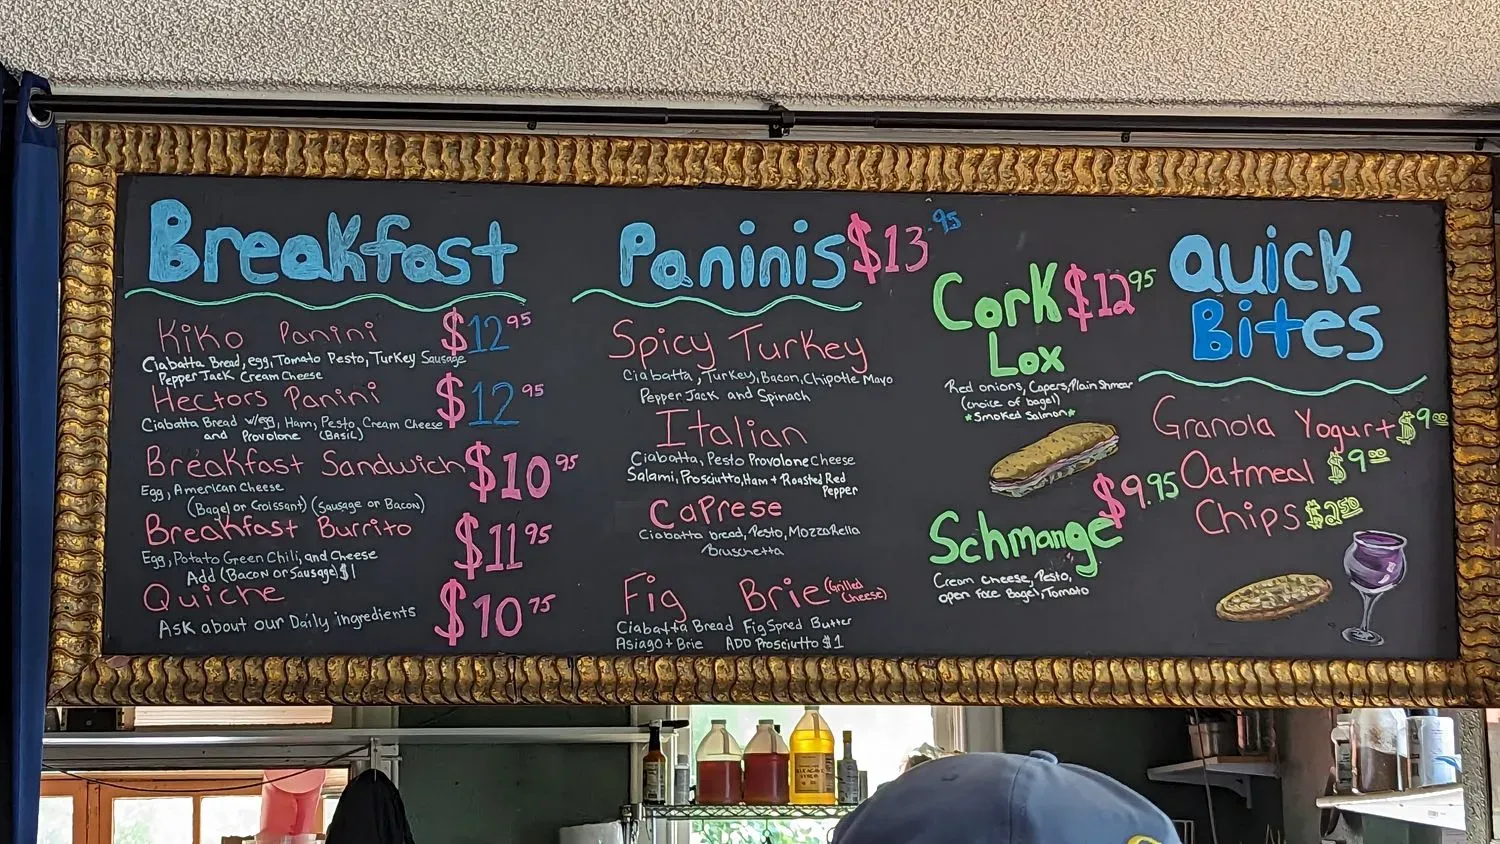 Breakfast
Kiko Panini $12.95
Ciabatta Bread, egg, Tomato Pesto, Turkey Sausage
Pepper Jack Cream Cheese
Hectors Panini $12.95
Ciabatta Bread w/egg, Ham, Pesto, Cream Cheese
and Provolone (Basil)
Breakfast Sandwich $10.95
Egg, American Cheese
(Bagel or Croissant) (Sausage or Bacon)
Breakfast Burrito $11.95
Egg, Potato Green Chili, and Cheese
Add (Bacon or Sausage) $1
Quiche $10.75
Ask about our Daily ingredients
Paninis $13.95
Spicy Turkey
Ciabatta, Turkey, Bacon, Chipotle Mayo
Pepper Jack and Spinach
Italian
Ciabatta, Pesto Provolone Cheese
Salami, Prosciutto, Ham + Roasted Red
Pepper
Caprese
Ciabatta bread, Pesto, Mozzarella
Bruschetta
Fig Brie (Grilled
Cheese)
Ciabatta Bread Fig Spred Butter
Asiago + Brie ADD Prosciutto $1
Cork $12.95
Lox
Red onions, Capers, Plain Shmear
(choice of bagel)
*Smoked Salmon*
$9.95
Schmange
Cream cheese, Pesto,
open face Bagel, Tomato
Quick
Bites
Granola Yogurt $9.00
Oatmeal $9.00
Chips $2.50